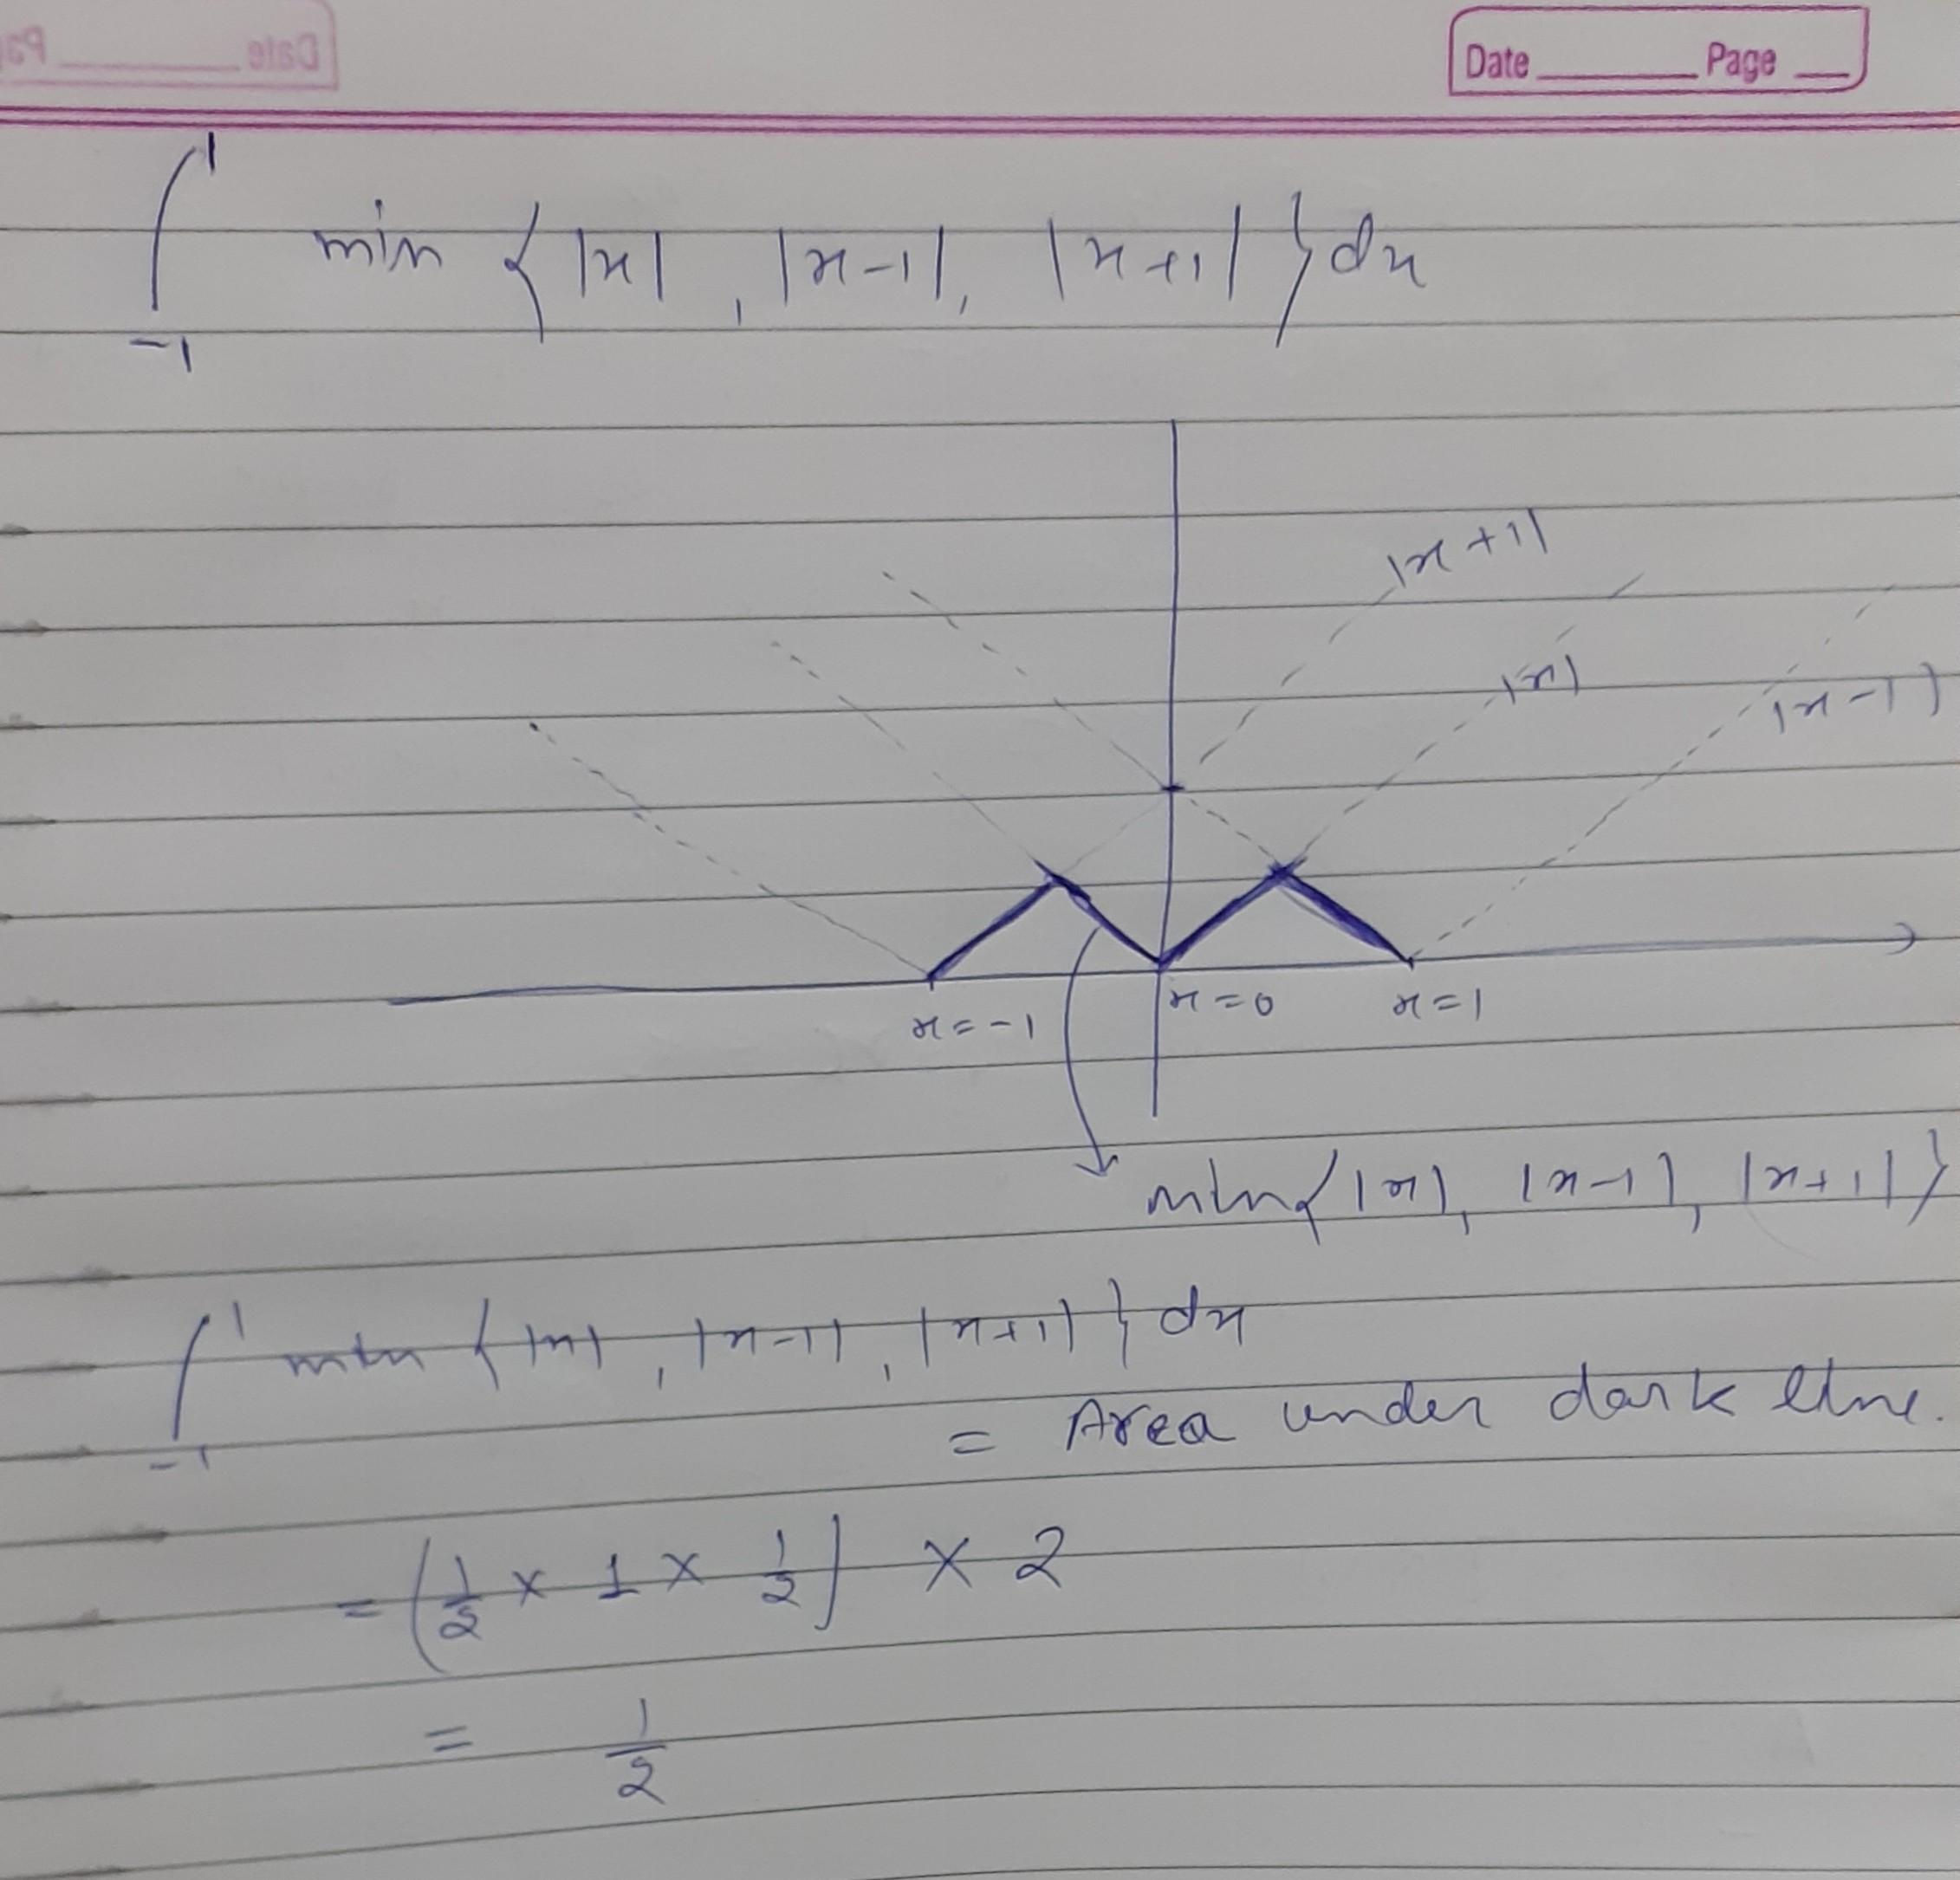 Date Page
∫_{-1}^{1} min { |x| , |x-1|, |x+1| } dx
|x+1|
|x|
|x-1|
x=-1 x=0 x=1
min{ |x|, |x-1|, |x+1| }
∫_{-1}^{1} min { |x| , |x-1| , |x+1| } dx
= Area under dark line.
= (1/2 × 1 × 1/2) × 2
= 1/2